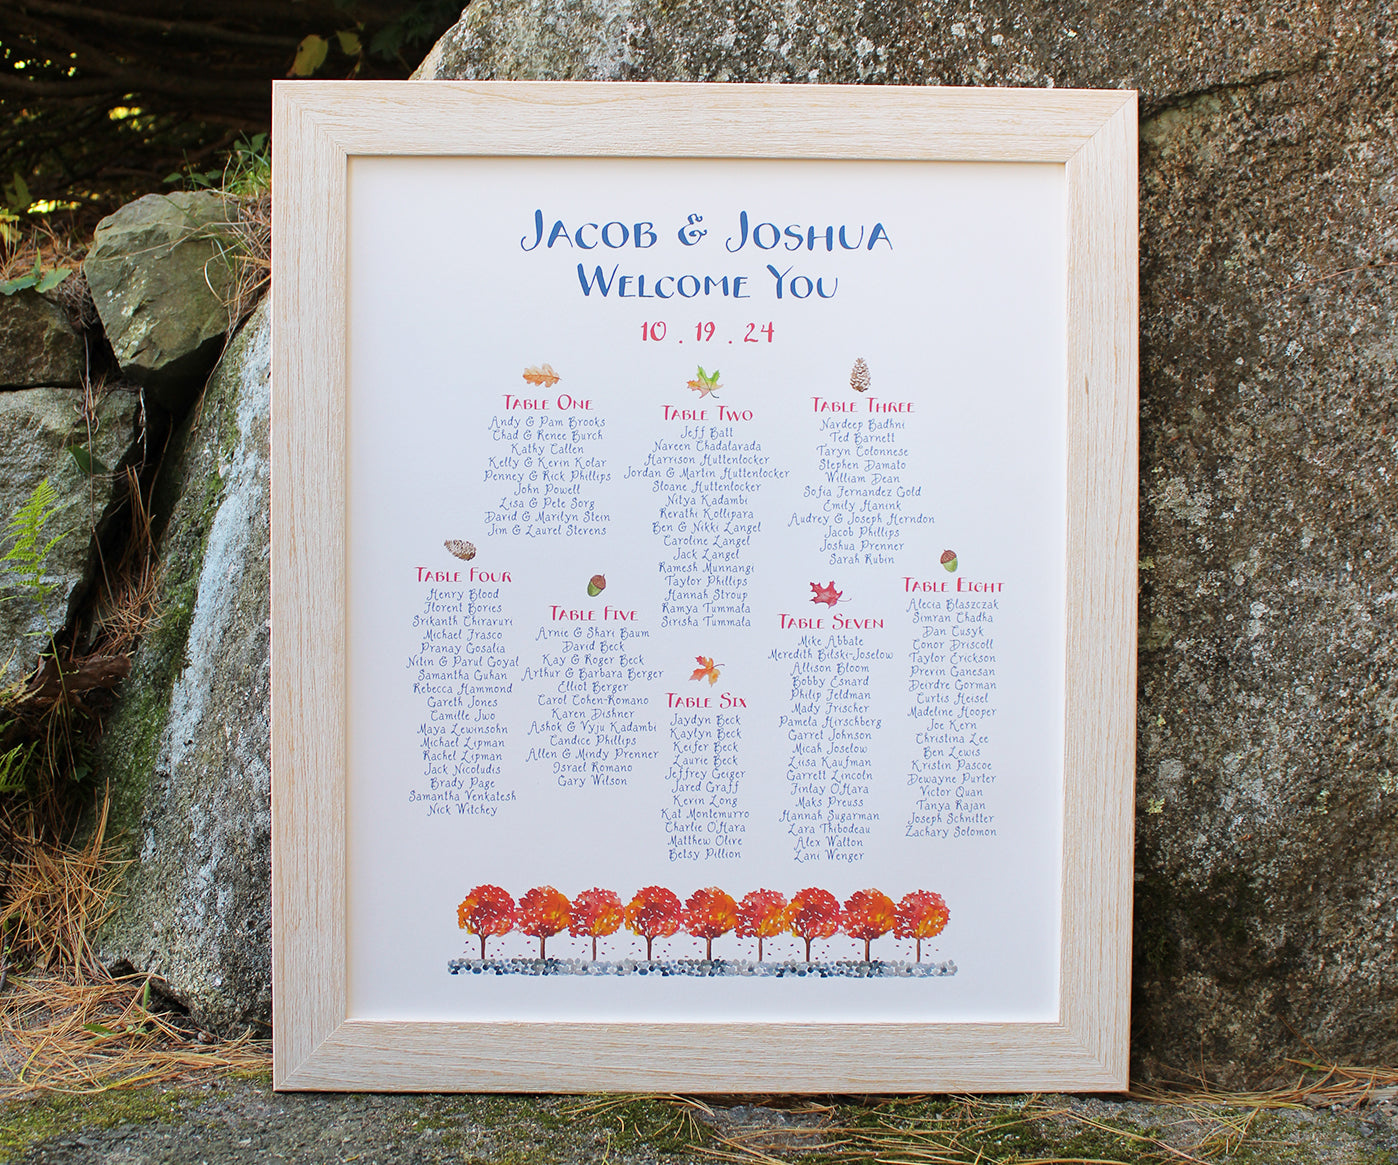 Jacob & Joshua
Welcome You
10 . 19 . 24
Table One
Andy & Pam Brooks
Chad & Renee Burch
Kathy Callen
Kelly & Kevin Kolar
Penney & Rick Phillips
John Powell
Lisa & Pete Sorg
David & Marilyn Stein
Jim & Laurel Stevens
Table Two
Jeff Batt
Nareen Chadalavada
Harrison Huttenlocker
Jordan & Martin Huttenlocker
Sloane Huttenlocker
Nitya Kadambi
Revathi Kollipara
Ben & Nikki Langel
Caroline Langel
Jack Langel
Ramesh Munnangi
Taylor Phillips
Hannah Stroup
Ramya Tummala
Sirisha Tummala
Table Three
Navdeep Badhni
Ted Barnett
Taryn Colonnese
Stephen Damato
William Dean
Sofia Fernandez Gold
Emily Hanink
Audrey & Joseph Herndon
Jacob Phillips
Joshua Prenner
Sarah Rubin
Table Four
Henry Blood
Florent Bories
Srikanth Chiraruri
Michael Frasco
Pranay Gosalia
Nitin & Parul Goyal
Samantha Guhan
Rebecca Hammond
Gareth Jones
Camille Jwo
Maya Lewinsohn
Michael Lipman
Rachel Lipman
Jack Nicoludis
Brady Page
Samantha Venkatesh
Nick Witchey
Table Five
Arnie & Shari Baum
David Beck
Kay & Roger Beck
Arthur & Barbara Berger
Elliot Berger
Carol Cohen-Romano
Karen Dishner
Ashok & Vyju Kadambi
Candice Phillips
Allen & Mindy Prenner
Israel Romano
Gary Wilson
Table Six
Jaydyn Beck
Kaylyn Beck
Keifer Beck
Laurie Beck
Jeffrey Geiger
Jared Graff
Kevin Long
Kat Montemurro
Charlie O'Hara
Matthew Olive
Betsy Pillion
Table Seven
Mike Abbate
Meredith Bilski-Joselow
Allison Bloom
Bobby Esnard
Philip Feldman
Mady Frischer
Pamela Hirschberg
Garret Johnson
Micah Joselow
Liisa Kaufman
Garrett Lincoln
Finlay O'Hara
Maks Preuss
Hannah Sugarman
Zara Thibodeau
Alex Walton
Lani Wenger
Table Eight
Alecia Blaszczak
Simran Chadha
Dan Cusyk
Conor Driscoll
Taylor Erickson
Previn Ganesan
Deirdre Gorman
Curtis Heisel
Madeline Hooper
Joe Kern
Christina Lee
Ben Lewis
Kristin Pascoe
Dewayne Purter
Victor Quan
Tanya Rajan
Joseph Schnitter
Zachary Solomon